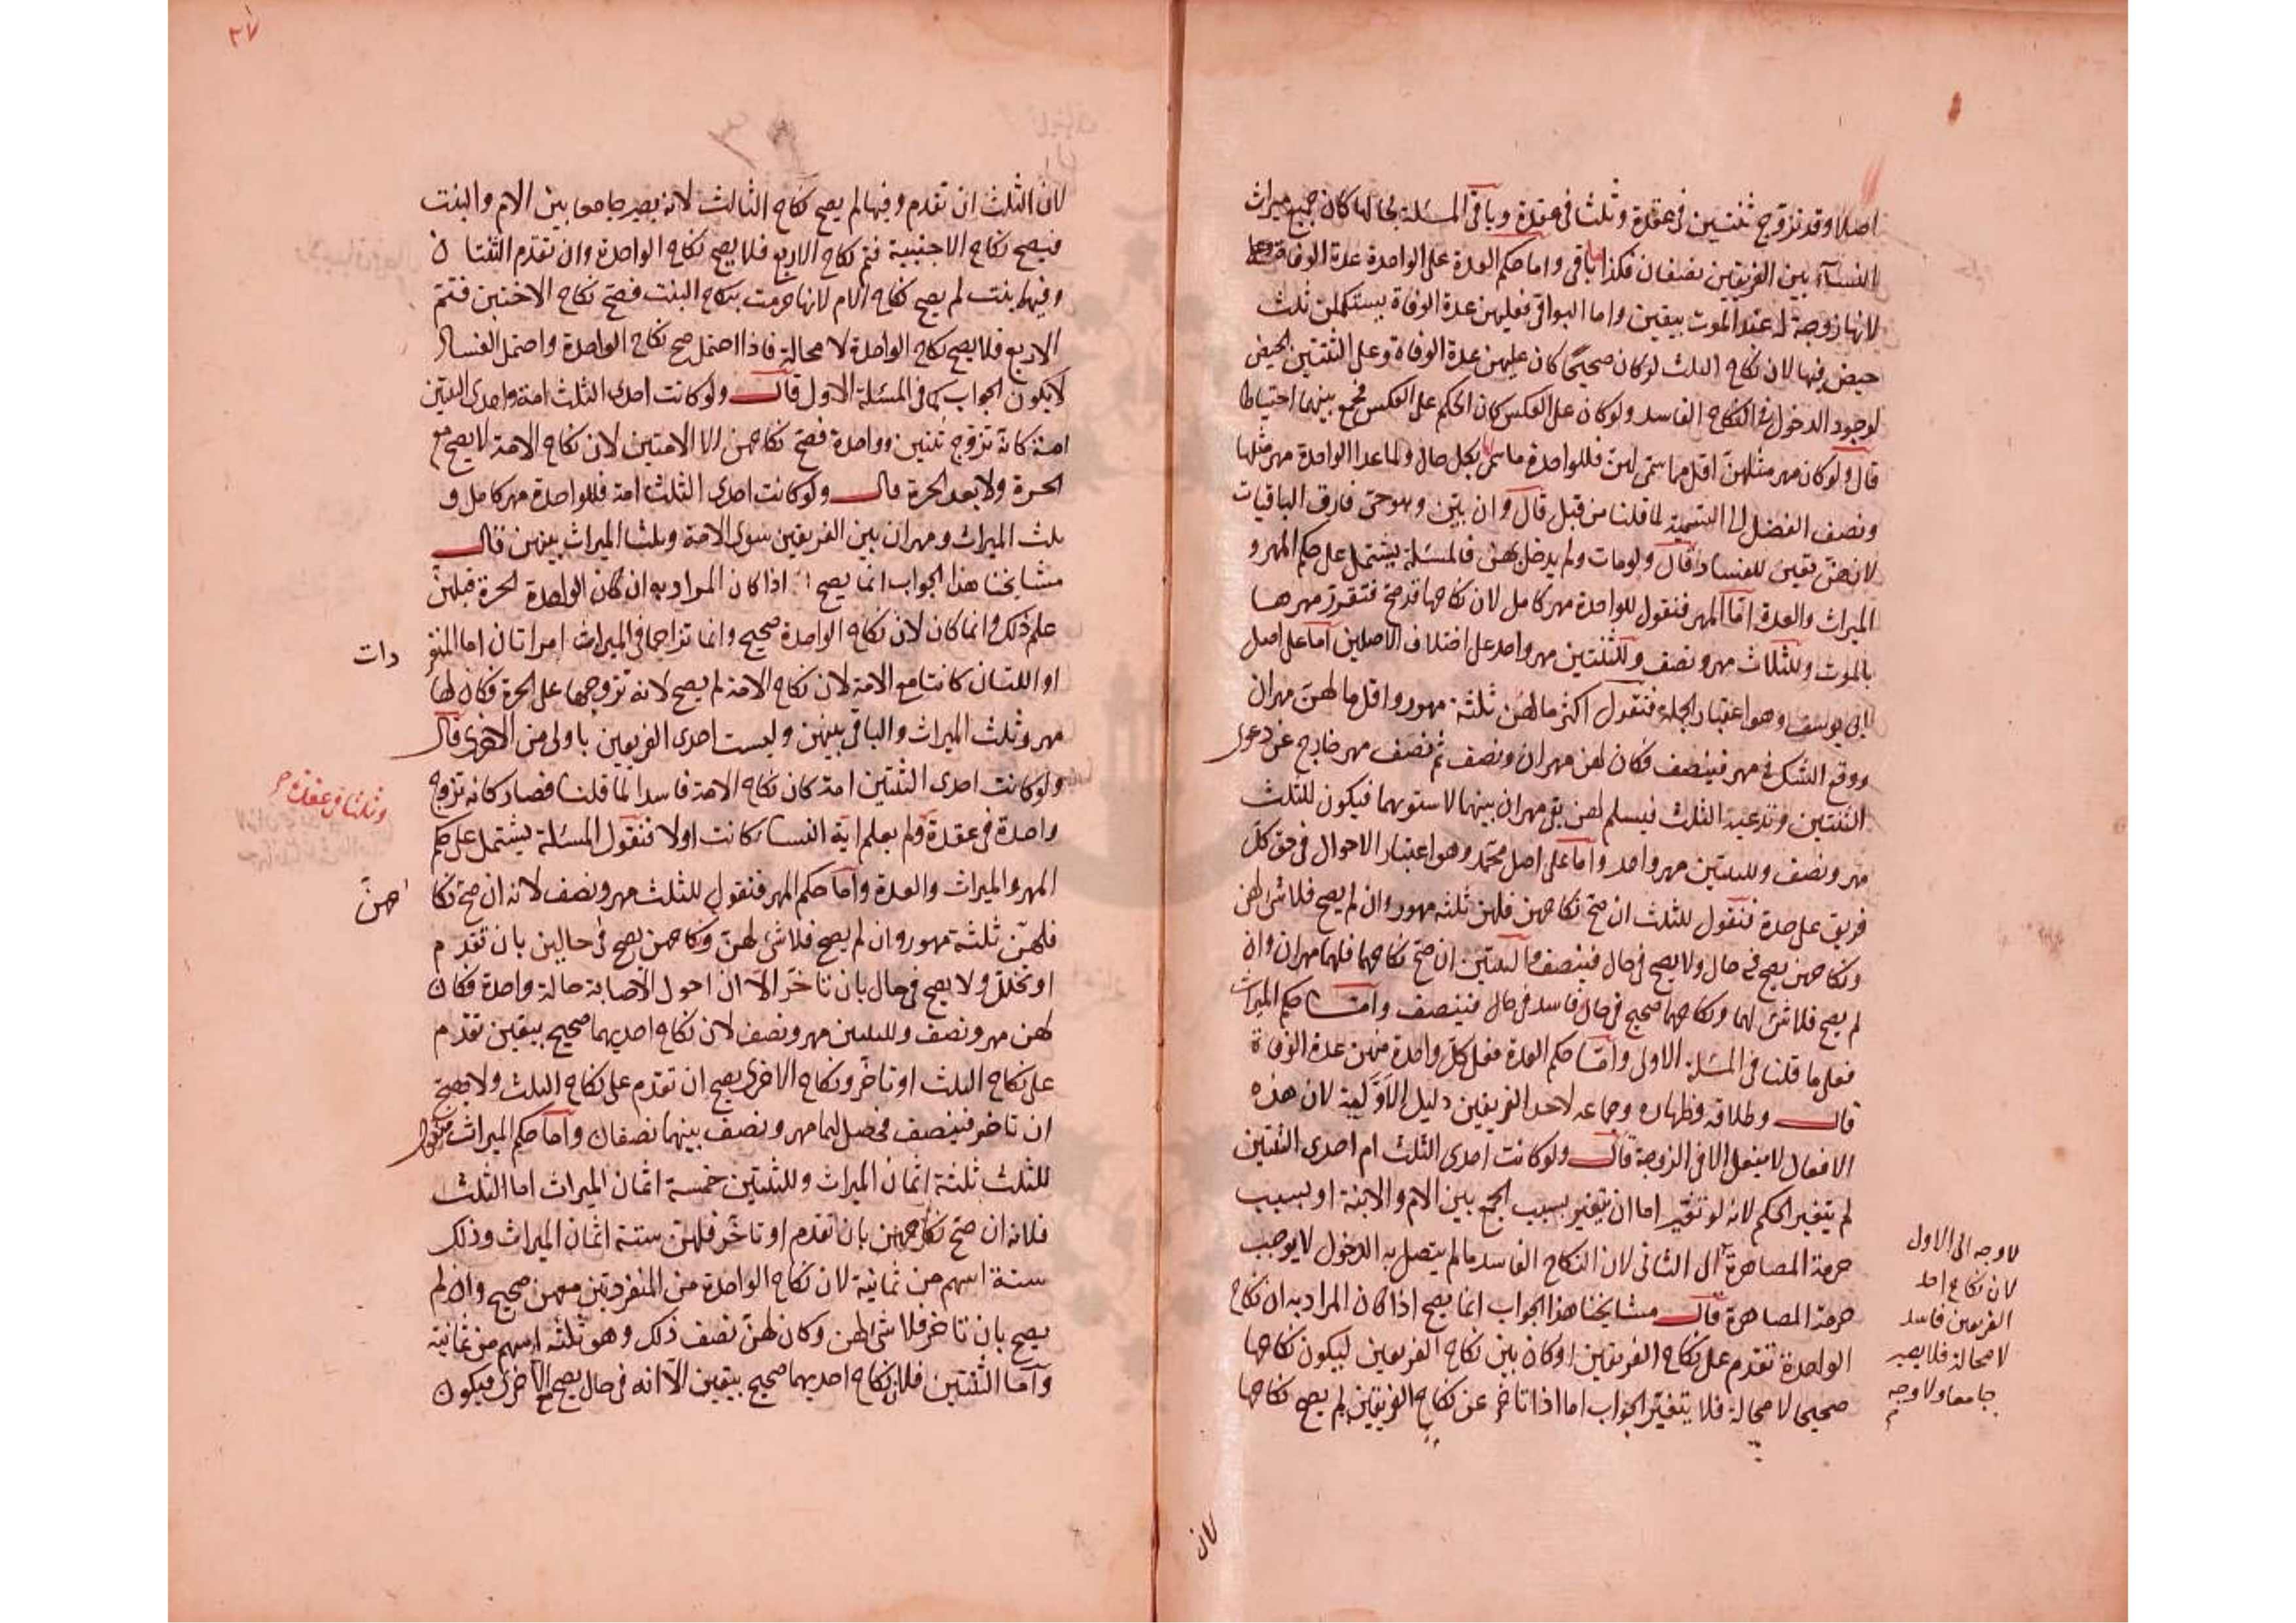 اصلا وقد تزوج ثنتين في عقدة وثلثا في عقدة وباقي المسئلة بحالها كان جميع ميراث
النساء بين الفريقين نصفان فكذا ما بقي واما حكم العدة على الواحدة عدة الوفاة
لانها زوجة له عند الموت بيقين واما البواقي فعليهن عدة الوفاة يستكملن ثلث
حيض فيها لان نكاح الثلث لو كان صحيحا كان عليهن عدة الوفاة وعلى الثنتين الحيض
لوجود الدخول في النكاح الفاسد ولو كان على العكس كان الحكم على العكس فجمع بينهما احتياطا
قال ولو كان مهر مثلهن اقل مما سمى لهن فللواحدة ما سمى لها بكل حال ولما عدا الواحدة مهر مثلها
ونصف الفضل الى التسمية لما قلنا من قبل قال وان بين وهو حي فارق الباقيات
لانهن تعين للفساد قال ولو مات ولم يدخل بهن فالمسئلة يشتمل على حكم المهر و
الميراث والعدة اما المهر فنقول للواحدة مهر كامل لان نكاحها قد صح فتقرر مهرها
بالموت وللثلاث مهر ونصف وللثنتين مهر واحد على اختلاف الاصلين اما على اصل
ابي يوسف وهو اعتبار الجملة فنقول اكثر ما لهن ثلثة مهور واقل ما لهن مهران
ووقع الشك في مهر فينصف فكان لهن مهران ونصف ثم نصف مهر خارج عن دعوى
الثنتين وتدعيه الثلث فيسلم لهن بقي مهران بينهما لاستوائهما فيكون للثلث
مهر ونصف وللثنتين مهر واحد واما على اصل محمد وهو اعتبار الاحوال في حق كل
فريق على حدة فنقول للثلث ان صح نكاحهن فلهن ثلثة مهور وان لم يصح فلا شئ لهن
ونكاحهن يصح في حال ولا يصح في حال فينصف والثنتين ان صح نكاحهما فلهما مهران وان
لم يصح فلا شئ لهما ونكاحهما صحيح في حال فاسد في حال فينصف واما حكم الميراث
فعلى ما قلنا في المسئلة الاولى واما حكم العدة فعلى كل واحدة منهن عدة الوفاة
قال وطلاقه وظهاره وجماعه لاحد الفريقين دليل الاولية لان هذه
الافعال لا ينفعل الا في الزوجة قال ولو كانت احدى الثلث ام احدى الثنتين
لم يتغير الحكم لانه لو تغير اما ان يتغير بسبب الجمع بين الام والابنة او بسبب
حرمة المصاهرة الى الثاني لان النكاح الفاسد ما لم يتصل به الدخول لا يوجب
حرمة المصاهرة قال مشايخنا هذا الجواب انما يصح اذا كان المراد به ان نكاح
الواحدة تقدم على نكاح الفريقين او كان بين نكاح الفريقين ليكون نكاحها
صحيحا لا محالة فلا يتغير الجواب اما اذا تاخر عن نكاح الفريقين لم يصح نكاحها
لا وجه الى الاول
لان نكاح احد
الفريقين فاسد
لا محالة فلا يصير
جامعا ولا وجه
لان
٣٧
لان الثلث ان تقدم وفيها لم يصح نكاح الثالث لانه يصير جامعا بين الام والبنت
فيصح نكاح الاجنبية فتم نكاح الاربع فلا يصح نكاح الواحدة وان تقدم الثنتان
وفيها بنت لم يصح نكاح الام لانها حرمت بنكاح البنت فصح نكاح الاختين فتتم
الاربع فلا يصح نكاح الواحدة لا محالة فاذا احتمل صح نكاح الواحدة واحتمل الفساد
لا يكون الجواب كما في المسئلة الاولى قال ولو كانت احدى الثلث امة واحدى الثنتين
امة كانه تزوج ثنتين وواحدة فصح نكاحهن الا الامتين لان نكاح الامة لا يصح مع
الحرة ولا بعد الحرة قال ولو كانت احدى الثلث امة فللواحدة مهر كامل و
ثلث الميراث ومهران بين الفريقين سوى الامة وثلثا الميراث بينهن قال
مشايخنا هذا الجواب انما يصح اذا كان المراد به ان كان الواحدة الحرة قبلهن
علم ذلك وانما كان لان نكاح الواحدة صحيح وانما تزاحمها في الميراث امراتان اما المنفر
دات
او اللتان كانتا مع الامة لان نكاح الامة لم يصح لانه تزوجها على الحرة فكان لها
مهر وثلث الميراث والباقي بينهن وليست احدى الفريقين باولى من الاخرى قال
ولو كانت احدى الثنتين امة كان نكاح الامة فاسدا لما قلنا فصار كانه تزوج
وثلثا في عقدة
واحدة في عقدة ولم يعلم اية النساء كانت اولا فنقول المسئلة يشتمل على حكم
المهر والميراث والعدة واما حكم المهر فنقول للثلث مهر ونصف لانه ان صح نكا
حهن
فلهن ثلثة مهور وان لم يصح فلا شئ لهن ونكاحهن يصح في حالين بان تقدم
او تخلل ولا يصح في حال بان تاخر الا ان احوال الاصابة حالة واحدة فكان
لهن مهر ونصف وللثنتين مهر ونصف لان نكاح احديهما صحيح بيقين تقدم
على نكاح الثلث او تاخر ونكاح الاخرى يصح ان تقدم على نكاح الثلث ولا يصح
ان تاخر فينصف فحصل لهما مهر ونصف بينهما نصفان واما حكم الميراث فنقول
للثلث ثلثة اثمان الميراث وللثنتين خمسة اثمان الميراث اما الثلث
فلانه ان صح نكاحهن بان تقدم او تاخر فلهن ستة اثمان الميراث وذلك
ستة اسهم من ثمانية لان نكاح الواحدة من المنفردتين معهن صحيح وان لم
يصح بان تاخر فلا شئ لهن وكان لهن نصف ذلك وهو ثلثة اسهم من ثمانية
واما الثنتين فلان نكاح احديهما صحيح بيقين الا انه في حال يصح الاخرى فيكون